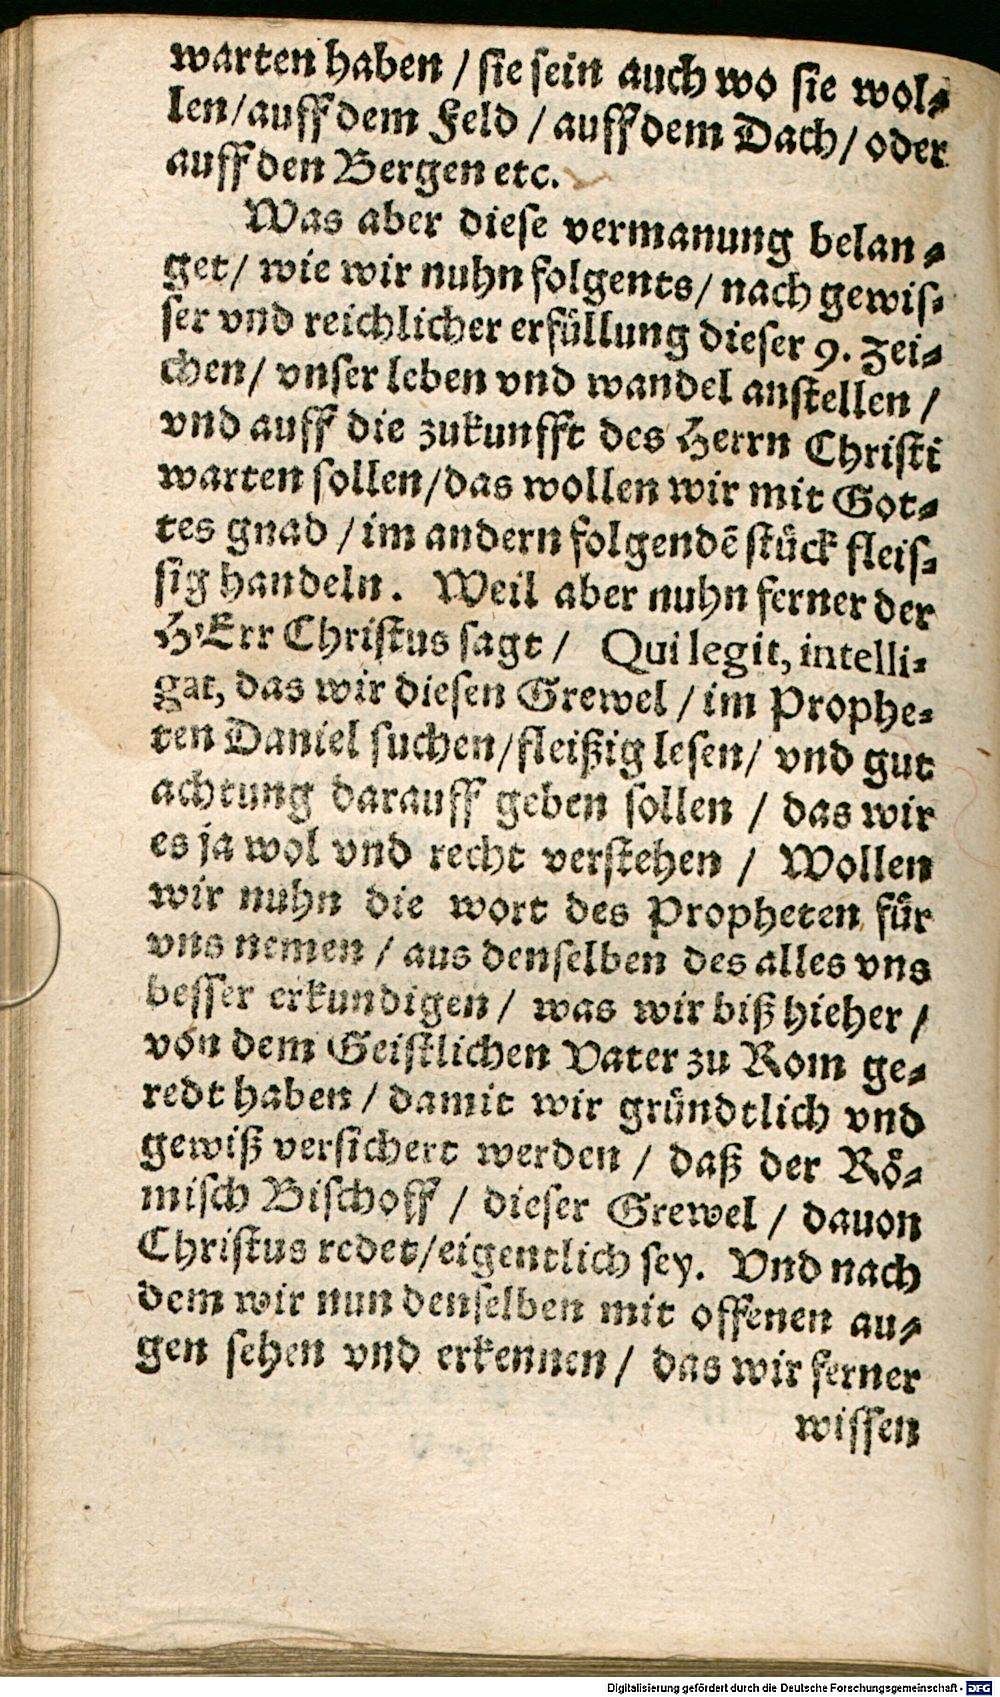 warten haben / sie sein auch wo sie wol⸗
len/auff dem Feld / auff dem Dach/ oder
auff den Bergen etc.
Was aber diese vermanung belan⸗
get/ wie wir nuhn folgents/ nach gewis⸗
ser vnd reichlicher erfüllung dieser 9. zei⸗
chen/ vnser leben vnd wandel anstellen /
vnd auff die zukunfft des Herrn Christi
warten sollen/das wollen wir mit Got⸗
tes gnad / im andern folgendē stück fleis⸗
sig handeln. Weil aber nuhn ferner der
HErr Christus sagt / Qui legit, intelli⸗
gat, das wir diesen Grewel / im Prophe⸗
ten Daniel suchen/fleißig lesen/ vnd gut
achtung darauff geben sollen / das wir
es ja wol vnd recht verstehen / Wollen
wir nuhn die wort des Propheten für
vns nemen / aus denselben des alles vns
besser erkundigen / was wir biß hieher /
von dem Geistlichen Vater zu Rom ge⸗
redt haben / damit wir gründtlich vnd
gewiß versichert werden / daß der Rö⸗
misch Bischoff / dieser Grewel / dauon
Christus redet/eigentlich sey. Vnd nach
dem wir nun denselben mit offenen au⸗
gen sehen vnd erkennen / das wir ferner
wissen
Digitalisierung gefördert durch die Deutsche Forschungsgemeinschaft - DFG